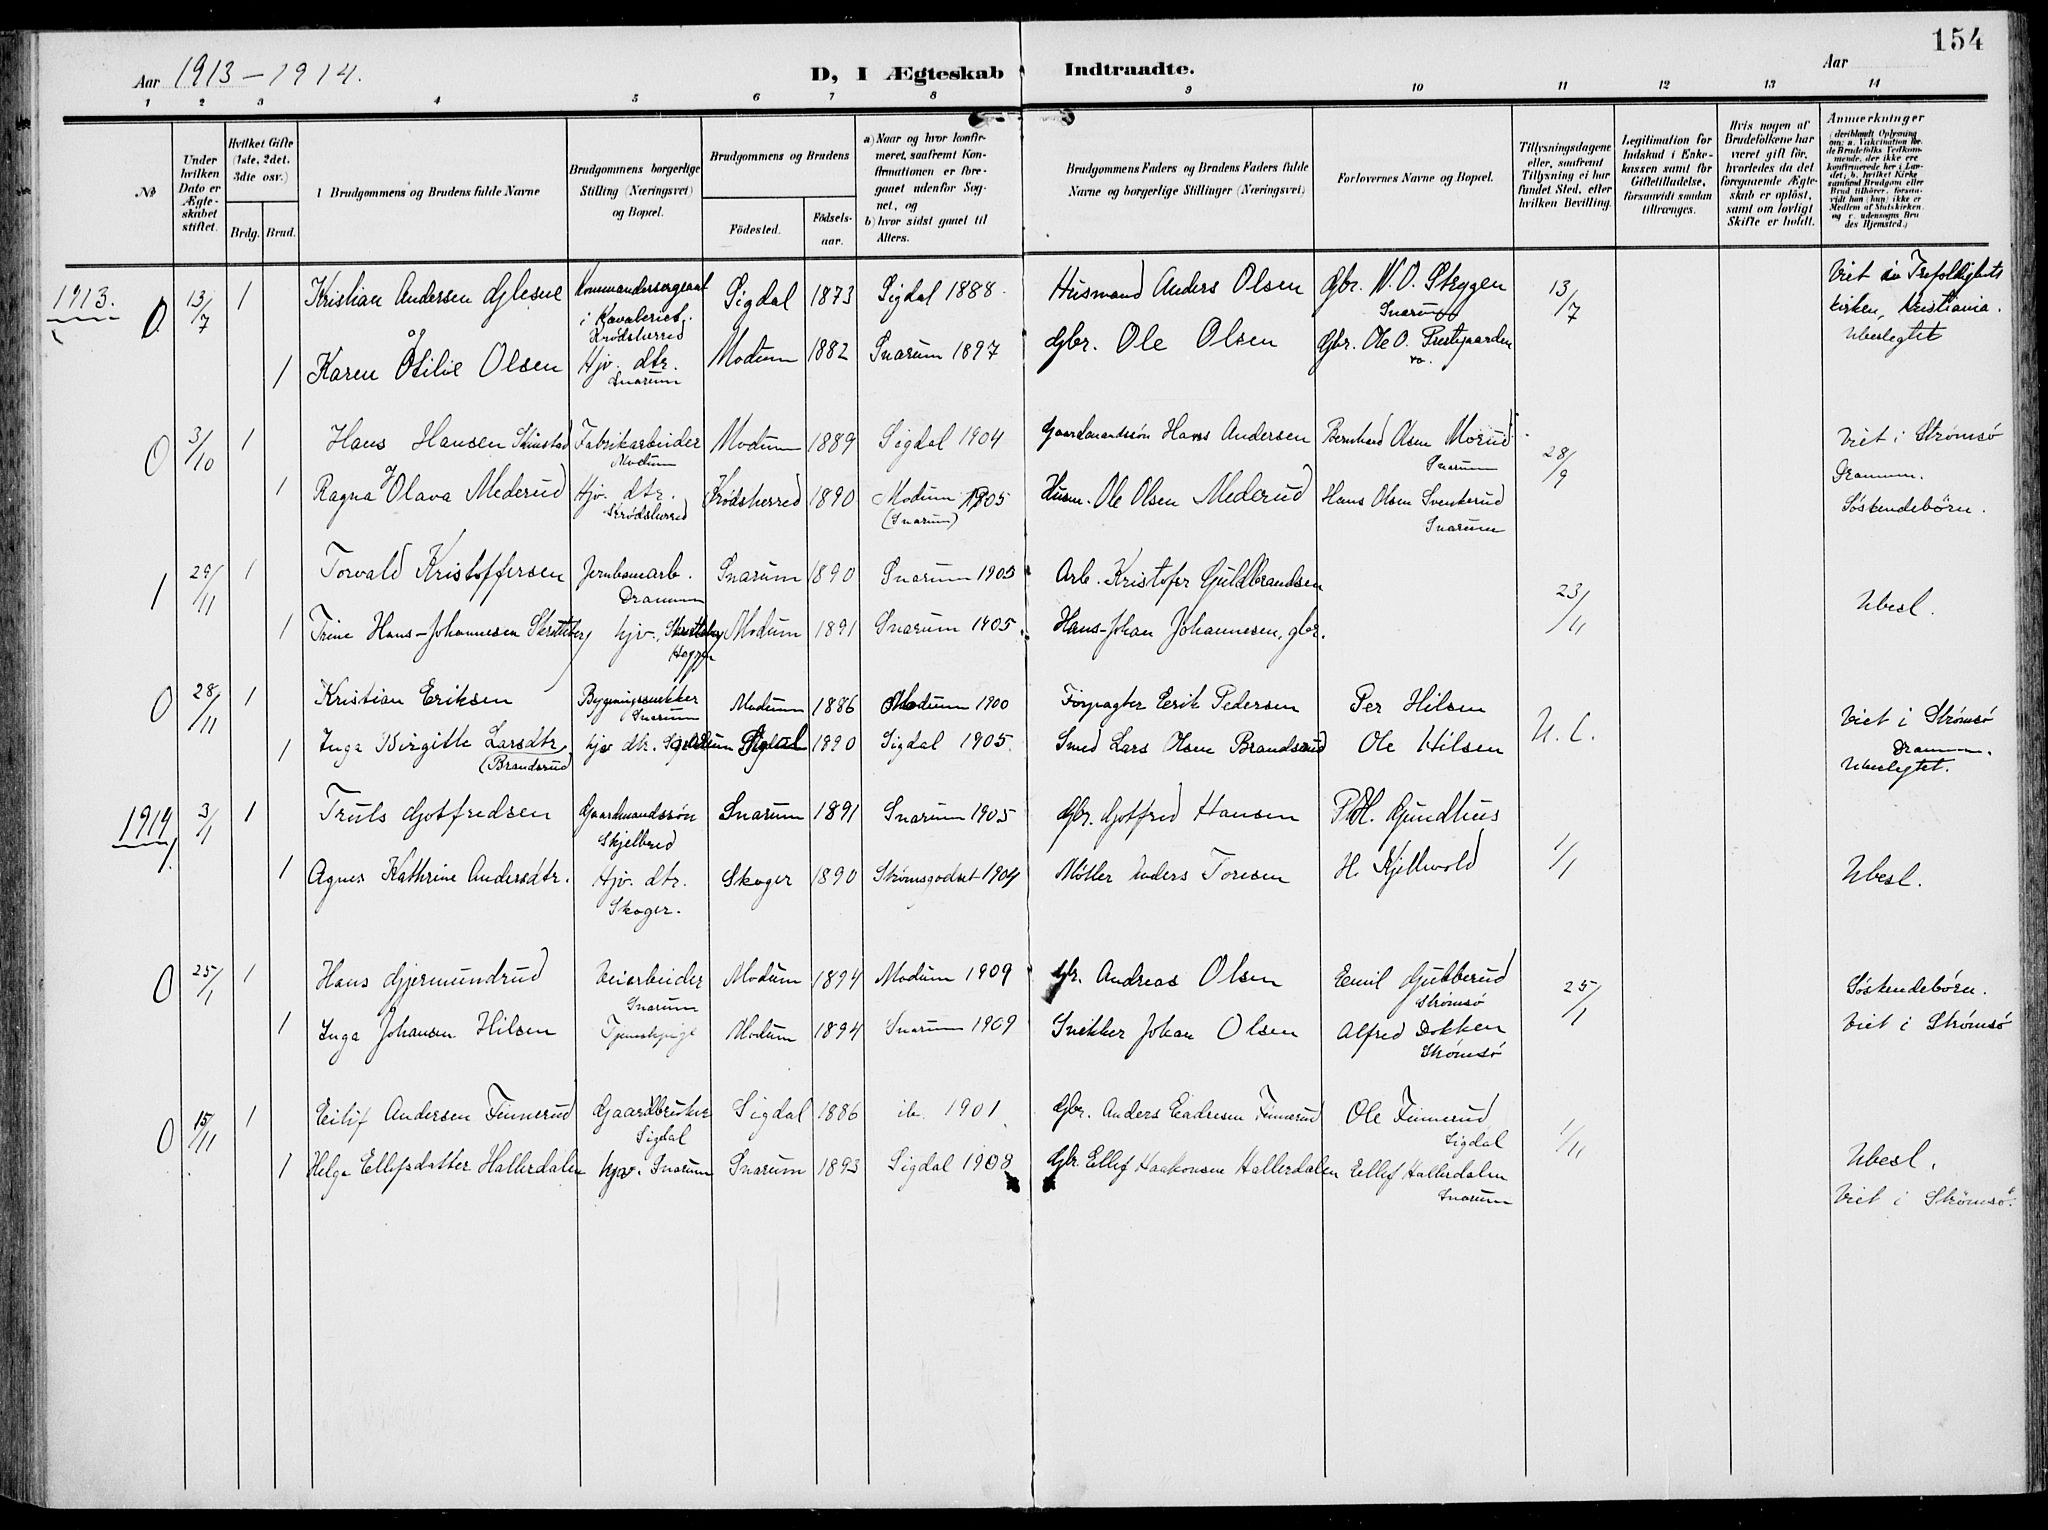 154
Aar 1913-1914.
D, I Ægteskab Indtraadte.
Aar
1 2 3 4 5 6 7 8 9 10 11 12 13 14
No
Under hvilken Dato er Ægteskabet stiftet.
Hvilket Gifte (1ste, 2det, 3dte osv.)
Brdg. Brud.
Brudgommens og Brudens fulde Navne
Brudgommens borgerlige Stilling (Næringsvei) og Bopæl.
Brudgommens og Brudens
Födested. Födselsaar.
a) Naar og hvor konfirmeret, saafremt Konfirmationen er foregaaet udenfor Sognet, og
b) hvor sidst gaaet til Alters.
Brudgommens Faders og Brudens Faders fulde Navne og borgerlige Stillinger (Næringsvei)
Forlovernes Navne og Bopæl.
Tillysningsdagene eller, saafremt Tillysning ei har fundet Sted, efter hvilken Bevilling.
Legitimation for Indskud i Enkekassen samt for Giftetilladelse, forsaavidt saadan tiltrænges.
Hvis nogen af Brudefolkene har været gift för, hvorledes da det foregaaende Ægteskab er oplöst, samt om lovligt Skifte er holdt.
Anmærkninger (deriblandt Oplysning om: a. Vaksination for de Brudefolks Vedkommende, der ikke ere konfirmerede her i Landet; b. hvilket Kirkesamfund Brudgom eller Brud tilhörer, forsaavidt han (hun) ikke er Medlem af Statskirken, og c. udensogns Brudes Hjemsted.)
1913. 0 13/7 1 Kristian Andersen Glesne Kommandersergeant i Kavaleriet. Krødsherred Sigdal 1873 Sigdal 1888. Husmand Anders Olsen Gbr. N. O. Skygen Snarum 13/7 Viet i Trefoldighetskirken, Kristiania. Ubeslegtet
og
1 Karen Otilie Olsen Hjv. dtr. Snarum Modum 1882 Snarum 1897 Gbr. Ole Olsen Gbr. Ole O. Prestgaarden
0 3/10 1 Hans Hansen Skinstad Fabrikarbeider Modum Modum 1889 Sigdal 1904 Gaardmandssøn Hans Andersen Bernhard Olsen Morud Snarum 28/9 Viet i Strømsø Drammen. Søskendebörn.
1 Ragna Olava Mederud Hjv. dtr. Krødsherred Krødsherred 1890 Modum 1905 (Snarum) Husm. Ole Olsen Mederud Hans Olsen Svenkerud Snarum
1 29/11 1 Torvald Kristoffersen Jernbanearb. Drammen Snarum 1890 Snarum 1905 Arb. Kristofer Guldbrandsen 23/11 Ubesl.
1 Trine Hans-Johannesen Skretteberg hjv. Modum 1891 Snarum 1905. Hans-Johan Johannesen, gbr.
0 28/11 1 Kristian Eriksen Bygningssnekker Snarum Modum 1886 Modum 1900 Forpagter Erik Pedersen Per Hilsen U. l. Viet i Strømsø Drammen. Ubeslegtet.
1 Inga Birgitte Larsdtr. (Brandsrud hjv dtr. Sigdal 1890 Sigdal 1905. Smed Lars Olsen Brandsrud Ole Hilsen
1914 1 3/1 1 Truls Gotfredsen Gaardmandssøn Skjelbred Snarum 1891 Snarum 1905 Gbr. Gotfred Hansen P. H. Gundhus 1/1 Ubesl.
1 Agnes Kathrine Andersdtr. Hjv. dtr. Skoger. Skoger 1890 Strømsgodset 1904 Møller Anders Toresen H. Kjellwold
0 25/1 1 Hans Gjermundrud Veiarbeider Snarum Modum 1894 Modum 1909 Gbr. Andreas Olsen Emil Gubberud Strømsø 25/1 Søskendebörn.
1 Inga Johansen Hilsen Tjenestepige Modum 1894 Snarum 1909 Snikker Johan Olsen Alfred Dokken Strømsø Viet i Strømsø
0 15/11 1 Eilif Andersen Finnerud Gaardbruker Sigdal Sigdal 1886 ib. 1901 Gbr. Anders Endresen Finnerud Ole Finnerud Sigdal 1/11
1 Helga Ellefsdatter Hallerdalen hjv. Snarum Snarum 1893 Sigdal 1908 Gbr. Ellef Haakonsen Hallerdalen Ellef Hallerdalen Snarum Ubesl. Viet i Strømsø.